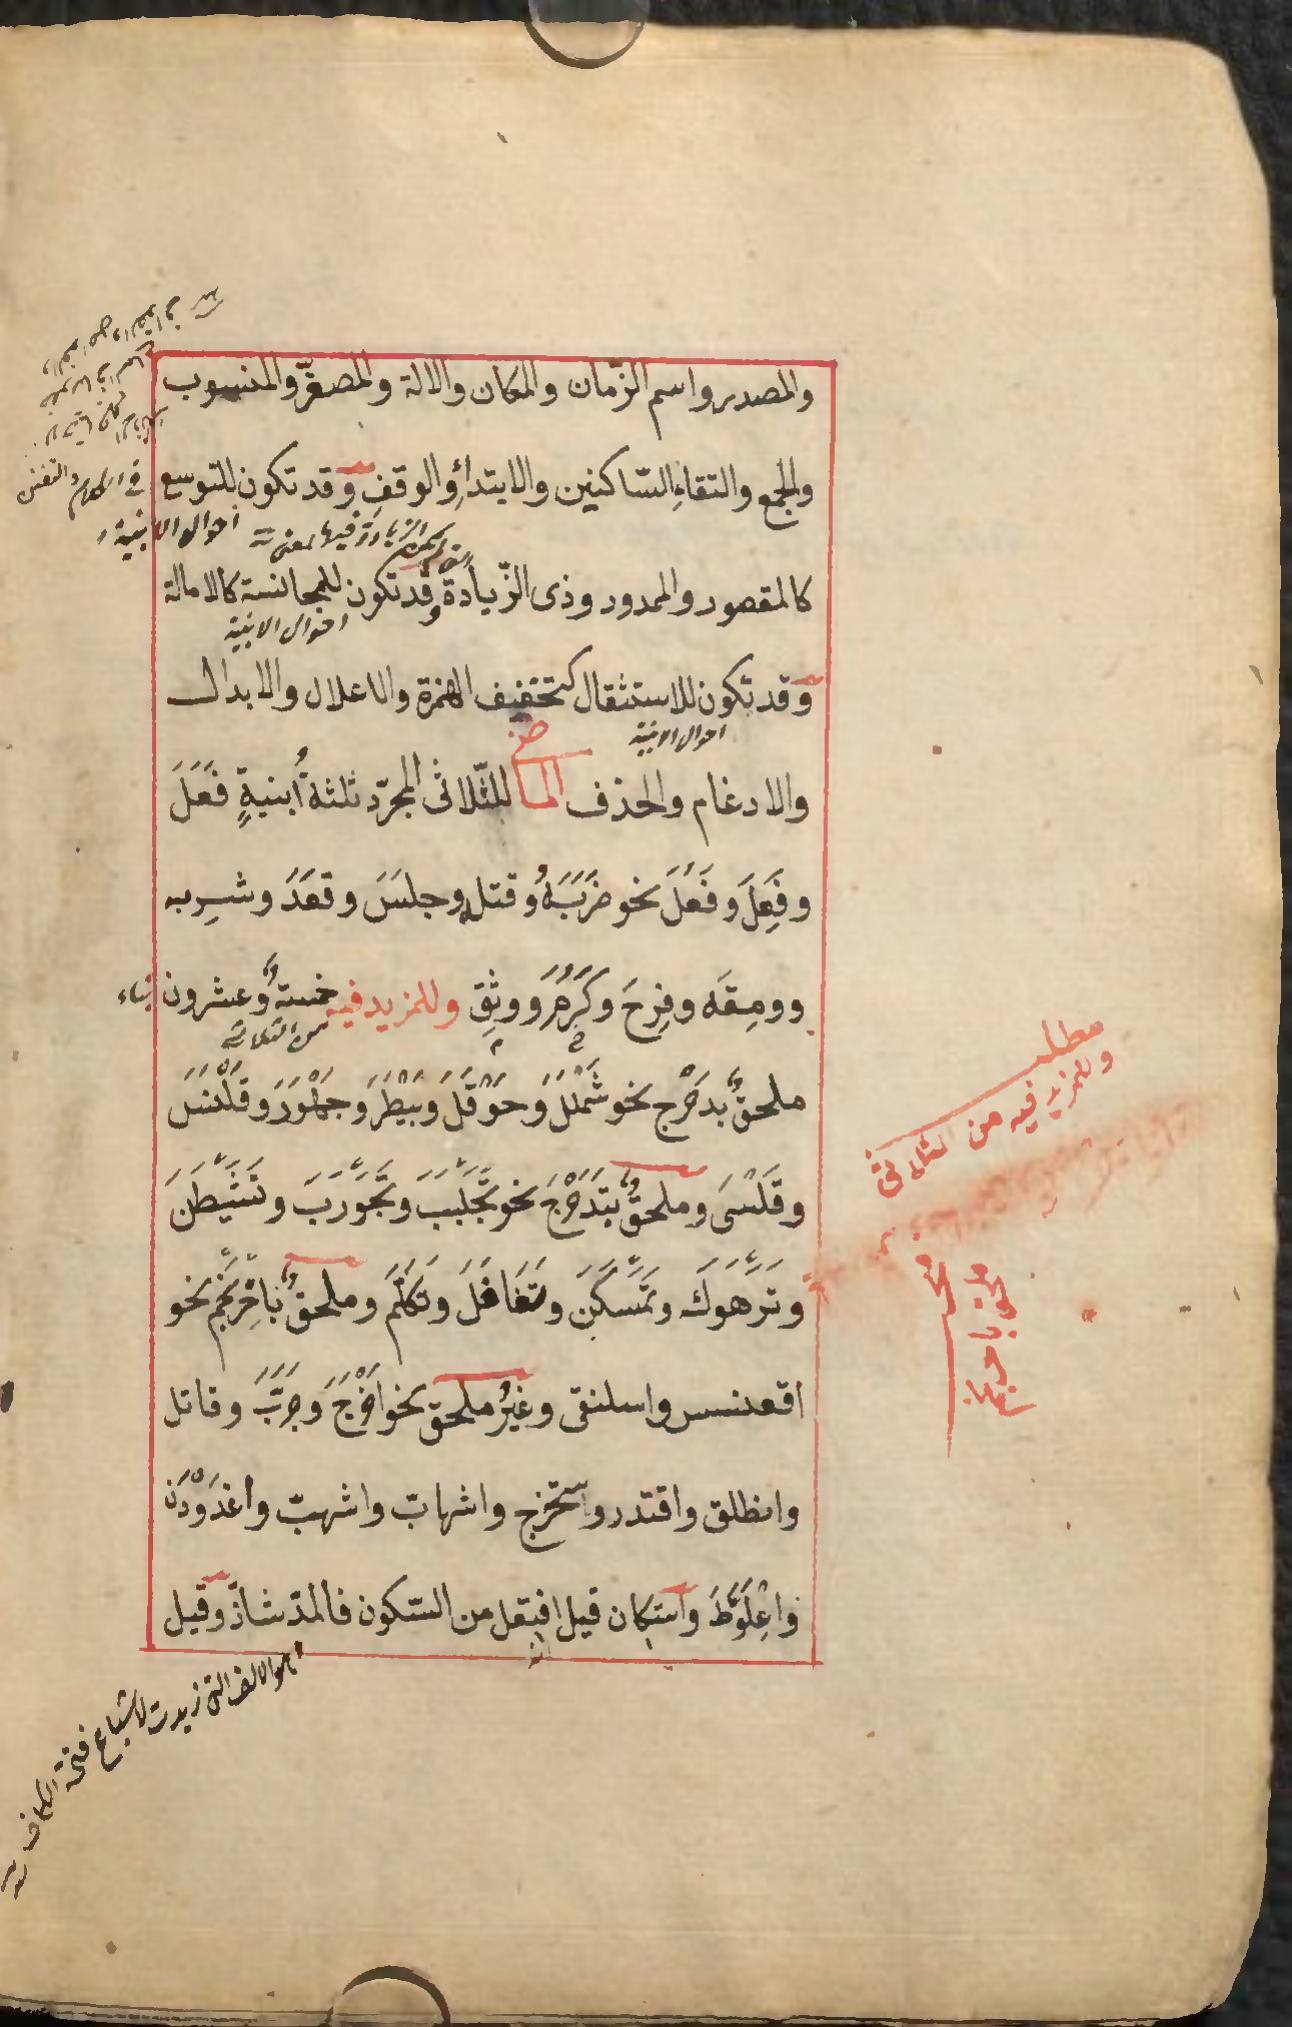 والمصدر واسم الزّمان والمكان والالة والمصغّر والمنسوب
والجمع والتقاءِ السّاكنين والابتداءِ والوقفِ وقد تكون للتوسع
في الكلام والتفنن
احوال الابنية
كالمقصور والممدود وذى الزّيادة وقد تكون للمجانسة كالامالة
احوال الابنية
وقد تكون للاستثقال كتخفيف الهمزة والاعلال والابدال
احوال الابنية
والادغام والحذف الماضى للثّلاثى المجرّد ثلثة أبنيةٍ فَعَلَ
وفَعِلَ وفَعُلَ نحو ضَرَبَهُ وقتله وجلسَ وقعَدَ وشرِبه
وومِقَه وفرِحَ وكَرُمَ ووثِقَ وللمزيد فيه خمسةٌ وعشرون بناء
من الثلاثة
ملحقٌ بدحْرَج نحو شَمْلَلَ وحَوْقَلَ وبَيْطَرَ وجَهْوَرَ وقَلْنَسَ
وقَلْسَى وملحقٌ بتَدَحْرَجَ نحو تَجَلْبَبَ وتَجَوْرَبَ وتَشَيْطَنَ
وتَرَهْوَكَ وتَمَسْكَنَ وتَغَافَلَ وتَكَلَّمَ وملحقٌ باحْرَنْجَمَ نحو
اقعنسس واسلنقى وغيرُ ملحق نحو اخْرَجَ وجَرَّبَ وقاتل
وانطلق واقتدر واستخرج واشهابّ واشهبّ واغدَوْدَن
واعْلَوَّطَ واستكان قيل افتعل من السّكون فالمدّ شاذّ وقيل
مطلب
ومزيد فيه من ثلاثى
ملحق باحرنجم
والالف التى زيدت لاشباع فتحة الكاف